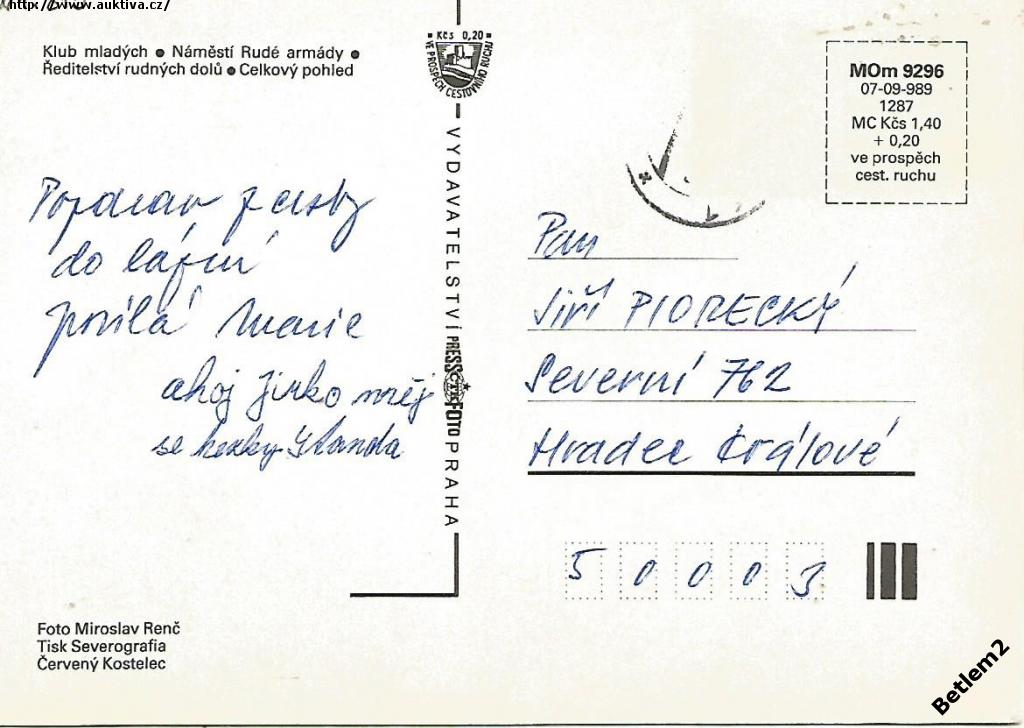 http://www.auktiva.cz/
Klub mladých ● Náměstí Rudé armády ●
Ředitelství rudných dolů ● Celkový pohled
Kčs 0,20
VE PROSPĚCH CESTOVNÍHO RUCHU
MOm 9296
07-09-989
1287
MC Kčs 1,40
+ 0,20
ve prospěch
cest. ruchu
Pozdrav z cesty
do lázní
posílá Marie
ahoj Jirko měj
se hezky Standa
VYDAVATELSTVÍ PRESSFOTO PRAHA
Pan
Jiří PIORECKÝ
Severní 762
Hradec Králové
5 0 0 0 3
Foto Miroslav Renč
Tisk Severografia
Červený Kostelec
Betlem2